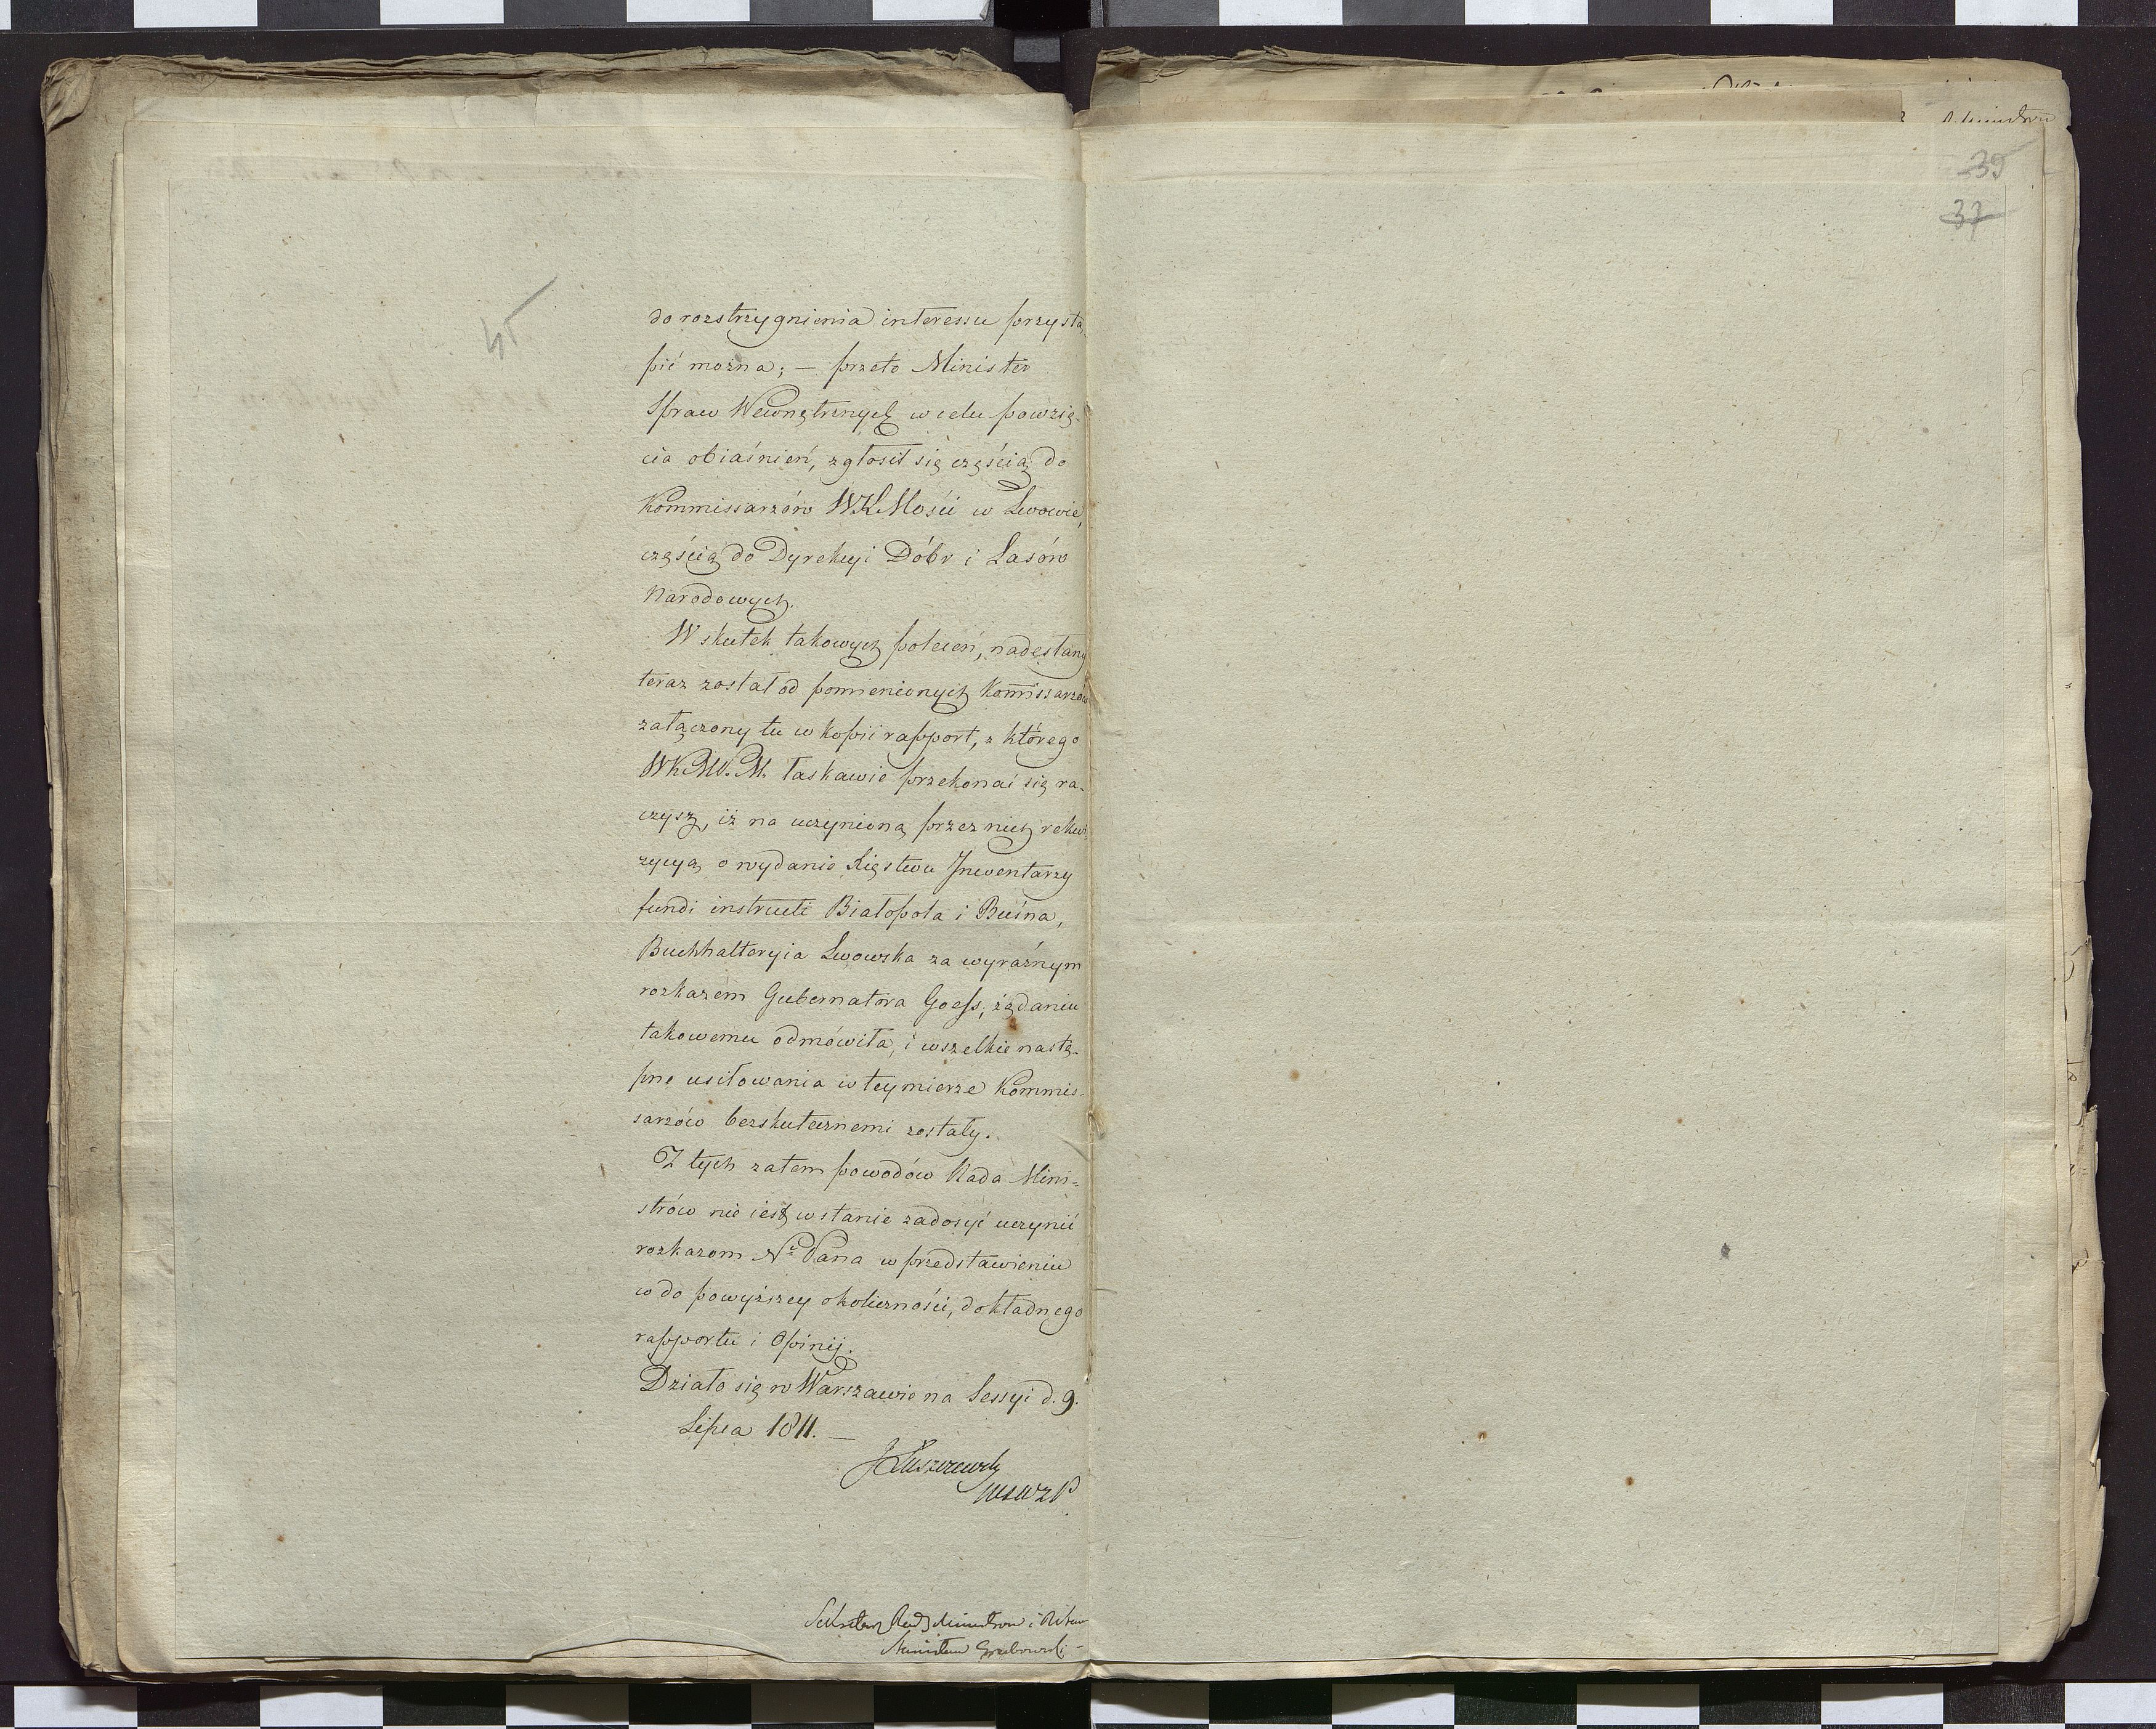 45
do rozstrzygnienia interessu przystą-
pić można; — przeto Minister
Spraw Wewnętrznych w celu powzię-
cia obiaśnień, zgłosił się częścią do
Kommissarzów WKMości w Lwowie,
częścią do Dyrekcyi Dóbr i Lasów
Narodowych.
W skutek takowych poleceń, nadesłany
teraz został od pomienionych Kom̄issarzów
załączony tu w kopii rapport, z którego
WKMW. M. łaskawie przekonać się ra-
czysz, iż na uczynioną przez nich rekwi
zycyą o wydanie Xięstwu Inwentarzy
fundi instructi Białopola i Buśna,
Buchhalteryia Lwowska za wyraźnym
rozkazem Gubernatora Goess, żądaniu
takowemu odmówiła, i wszelkie nastę-
pne usiłowania w tey mierze Kommis-
sarzów bezskutecznemi zostały.
Z tych zatem powodów Rada Mini=
strów nie iest w stanie zadosyć uczynić
rozkazom Nº Pana w przedstawieniu
co do powyższey okoliczności, dokładnego
rapportu i Opinij.
Działo się w Warszawie na Sessyi d. 9.
Lipca 1811. —
JŁuszczewski
Sekretarz Rady Ministrow i
Stanisław Grabowski
39
37